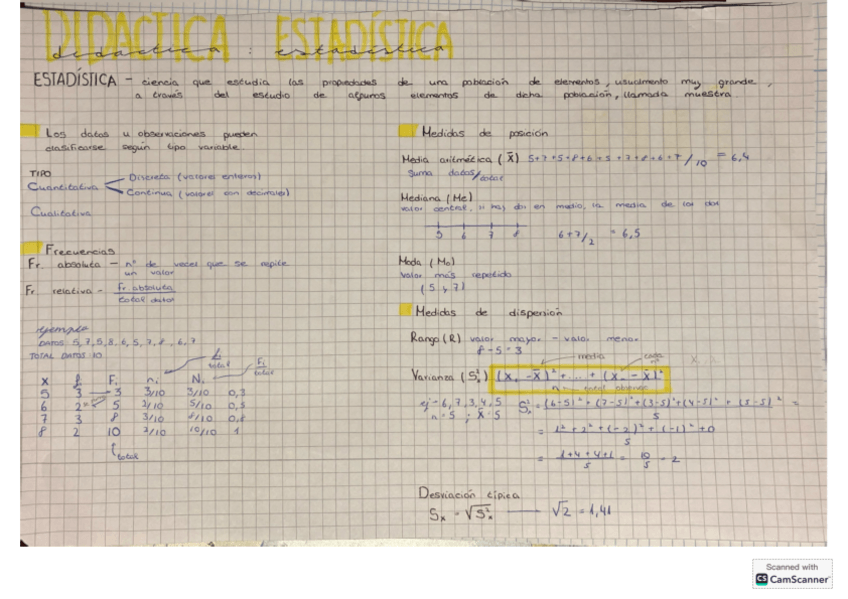 DIDACTICA : ESTADÍSTICA
didactica : estadística
ESTADÍSTICA - ciencia que estudia las propiedades de una población de elementos, usualmente muy grande,
a través del estudio de algunos elementos de dicha población, llamada muestra.
Los datos u observaciones pueden
clasificarse según tipo variable.
TIPO
Cuantitativa
Discreta (valores enteros)
Continua (valores con decimales)
Cualitativa
Frecuencias
Fr. absoluta - nº de veces que se repite
un valor
Fr. relativa - Fr absoluta / total datos
ejemplo
DATOS 5, 7, 5, 8, 6, 5, 7, 8, 6, 7
TOTAL DATOS 10
fi / total
Fi / total
X f Fi ni Ni
5 3 3 3/10 3/10 0,3
6 2 5 2/10 5/10 0,5
7 3 8 3/10 8/10 0,8
8 2 10 2/10 10/10 1
total
Medidas de posición
Media aritmética (X̄) 5+7+5+8+6+5+7+8+6+7/10 = 6,4
suma datos/total
Mediana (Me)
valor central, si hay dos en medio, la media de los dos
5 6 7 8 6+7/2 = 6,5
Moda (Mo)
valor más repetido
(5 y 7)
Medidas de dispersión
Rango (R) valor mayor - valor menor
8-5=3
media
Varianza (S²ₓ) (x - x̄)² + ... + (x - x̄)²
n
ej = 6, 7, 3, 4, 5
n = 5 ; x̄ = 5
S²ₓ = (6-5)² + (7-5)² + (3-5)² + (4-5)² + (5-5)² / 5 =
= 1² + 2² + (-2)² + (-1)² + 0 / 5
= 1+4+4+1 / 5 = 10 / 5 = 2
Desviación típica
Sₓ = √S²ₓ — √2 = 1,41
Scanned with
CS CamScanner